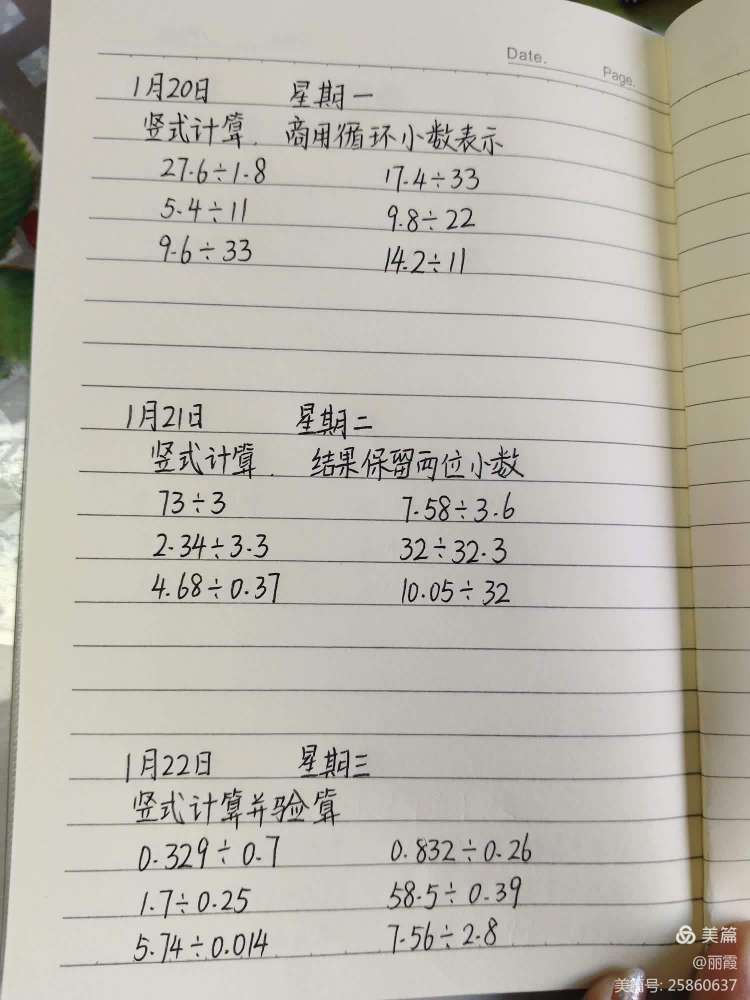 Date.
Page.
1月20日 星期一
竖式计算. 商用循环小数表示
27.6÷1.8 17.4÷33
5.4÷11 9.8÷22
9.6÷33 14.2÷11
1月21日 星期二
竖式计算. 结果保留两位小数
73÷3 7.58÷3.6
2.34÷3.3 32÷32.3
4.68÷0.37 10.05÷32
1月22日 星期三
竖式计算并验算
0.329÷0.7 0.832÷0.26
1.7÷0.25 58.5÷0.39
5.74÷0.014 7.56÷2.8
美篇
@丽霞
美篇号: 25860637